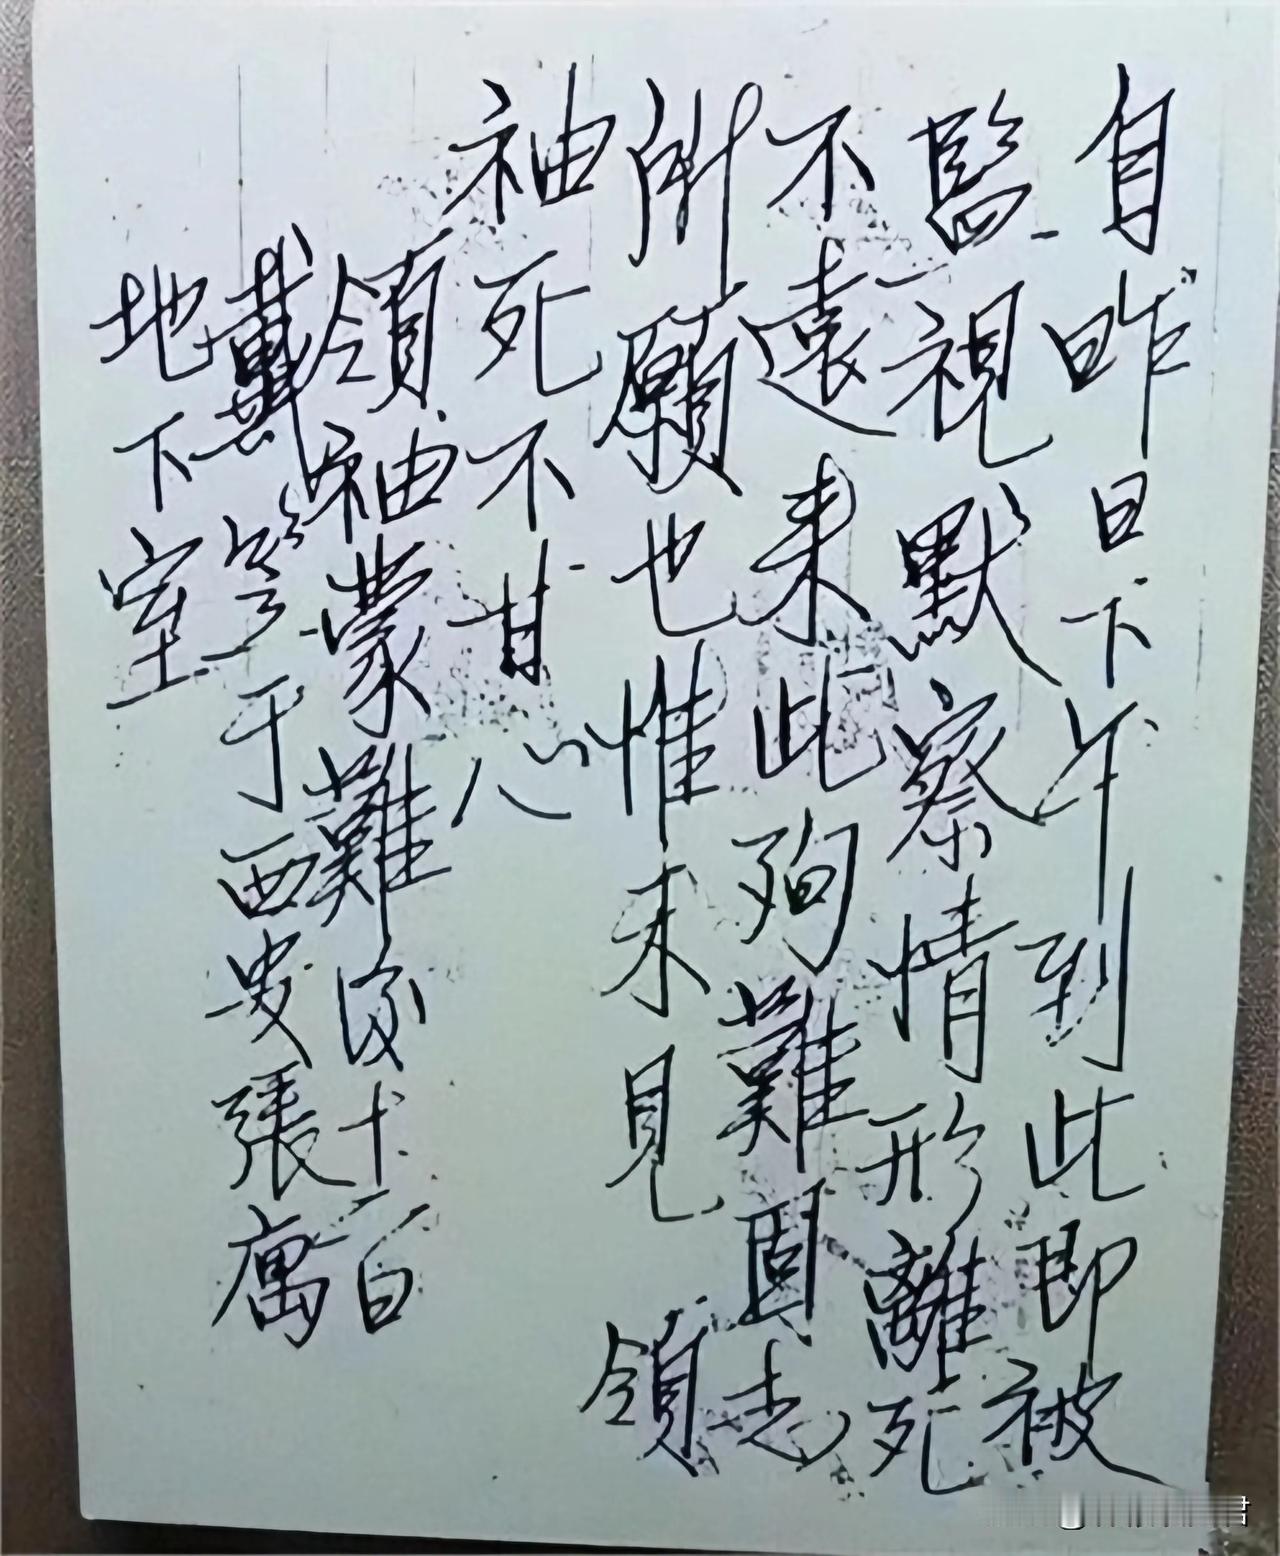 自昨日下午到此即被
監視默察情形離死
不遠来此殉難固志
所願也惟未見領
袖死不甘心
領袖蒙難後十一日
戴笠于西安張寓
地下室